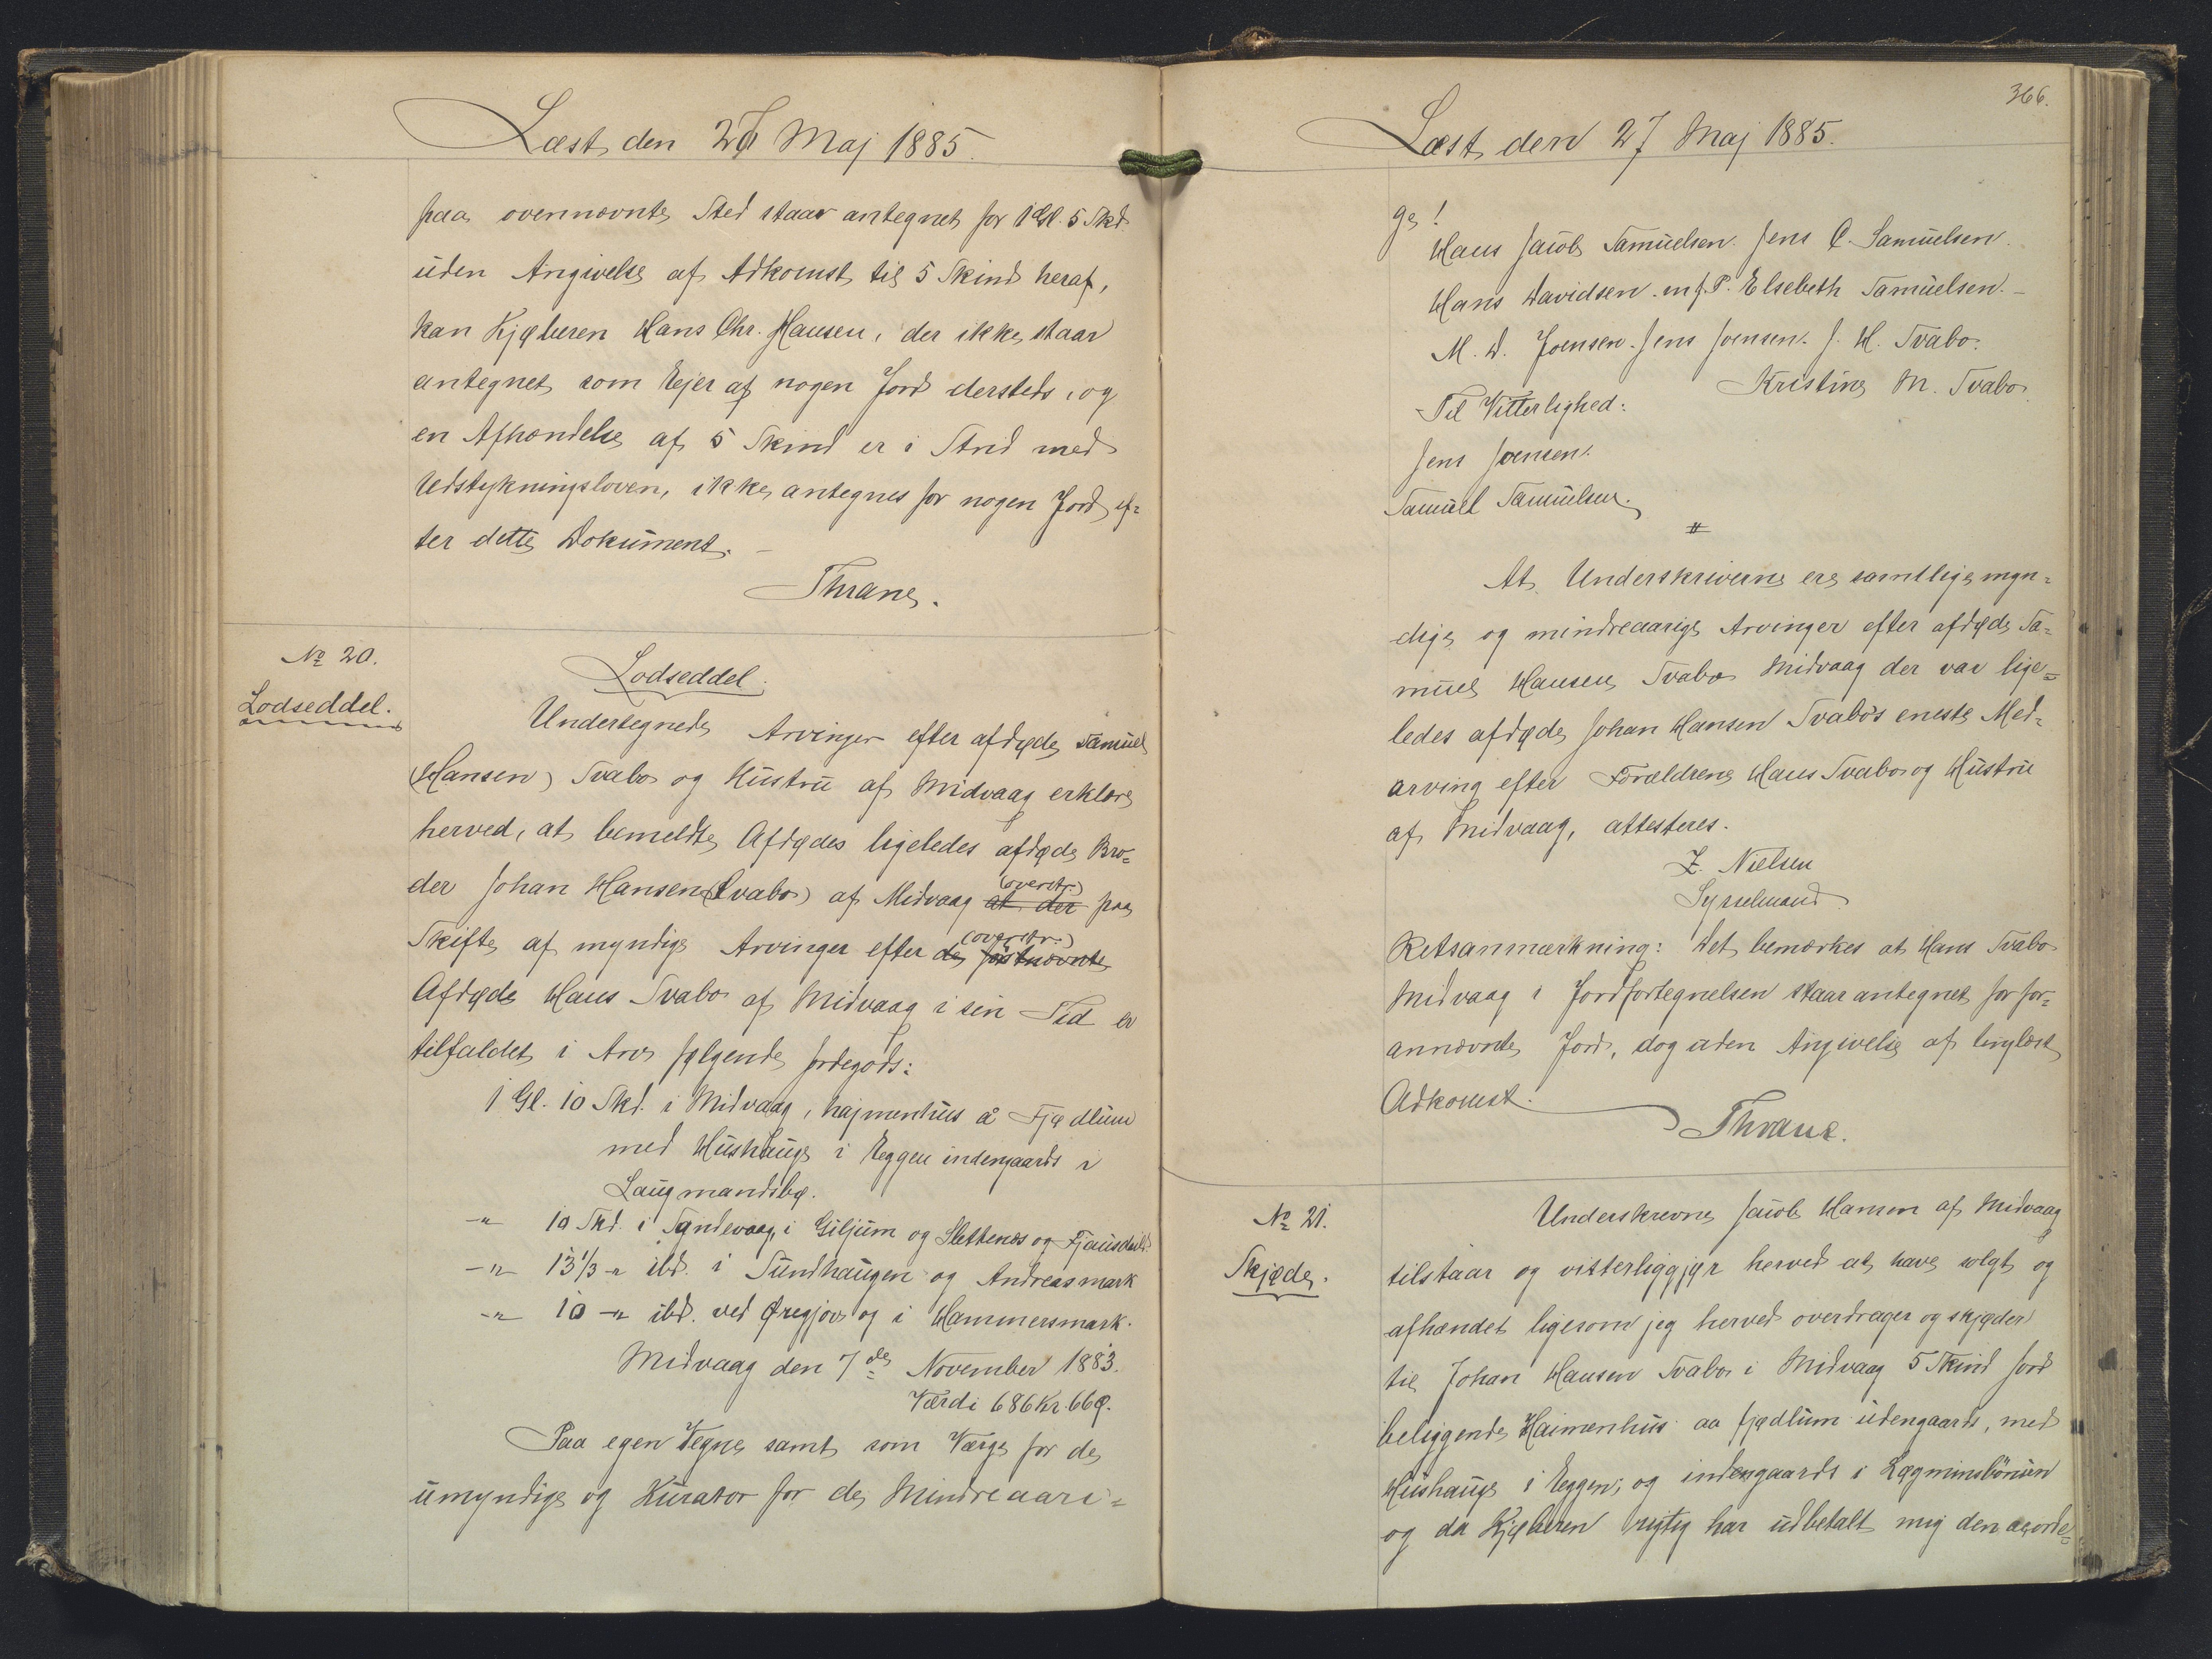 Læst den 27 Maj 1885.
paa ovennævnte Sted staar antegnet for 1 Gl. 5 Skd.
uden Angivelse af Adkomst til 5 Skind heraf,
kan Kjøberen Hans Chr. Hansen, der ikke staar
antegnet som Eejer af nogen Jord dersteds, og
en Afhændelse af 5 Skind er i Strid med
Udstykningsloven, ikke antegnes for nogen Jord ef=
ter dette Dokument. —
Thrane.
№ 20.
Lodseddel.
Lodseddel.
Undertegnede Arvinger efter afdøde Samuel
(Hansen) Svabo og Hustru af Midvaag erklære
herved, at bemeldte Afdødes ligeledes afdøde Bro=
der Johan Hansen (Svabo) af Midvaag at der (overstr.) paa
Skifte af myndige Arvinger efter de førstnævnte (overstr.)
Afdøde Hans Svabo af Midvaag i sin Tid er
tilfaldet i Arv følgende Jordegods:
1 Gl. 10 Skd. i Midvaag, hajmenhus å Fjødlum
med Hushauge i Eggen indengaards i
Laugmandsbø.
-"- 10 Skd. i Søndevaag, i Giljum og Slettenæs og Fjausdeild.
-"- 13 1/3 -"- ibd. i Sundhaugen og Andreasmark
-"- 10 -"- ibd. ved Øregjov og i Hammersmark.
Midvaag den 7de November 1883.
Værdi 686 Kr. 66 Ø.
Paa egen Vegne samt som Værge for de
umyndige og Kurator for de Mindreaari=
366.
Læst den 27 Maj 1885.
ge!
Hans Jacob Samuelsen. Jens C. Samuelsen.
Hans Davidsen. m.f.P. Elsebeth Samuelsen. —
M. D. Joensen. Jens Joensen. J. H. Svabo.
Kristine M. Svabo.
Til Vitterlighed:
Jens Joensen.
Samuel Samuelsen.
At Underskriverne ere samtlige myn=
dige og mindreaarige Arvinger efter afdøde Sa=
muel Hansen Svabo Midvaag der var lige=
ledes afdøde Johan Hansen Svabo's eneste Med=
arving efter Forældrene Hans Svabo og Hustru
af Midvaag, attesteres.
Z. Nielsen
Sysselmand.
Retsanmærkning: Det bemærkes at Hans Svabo
Midvaag i Jordfortegnelsen staar antegnet for for=
annævnte Jord, dog uden Angivelse af tinglæst
Adkomst.
Thrane.
№ 21.
Skjøde.
Underskrevne Jacob Hansen af Midvaag
tilstaar og vitterliggjør herved at have solgt og
afhændet ligesom jeg herved overdrager og skjøder
til Johan Hansen Svabo i Midvaag 5 Skind Jord
beliggende Haimenhus aa fjødlum udengaards, med
Hushauge i Eggen; og indengaards i Løgminsbönun
og da Kjøberen rigtig har udbetalt mig den acorde=